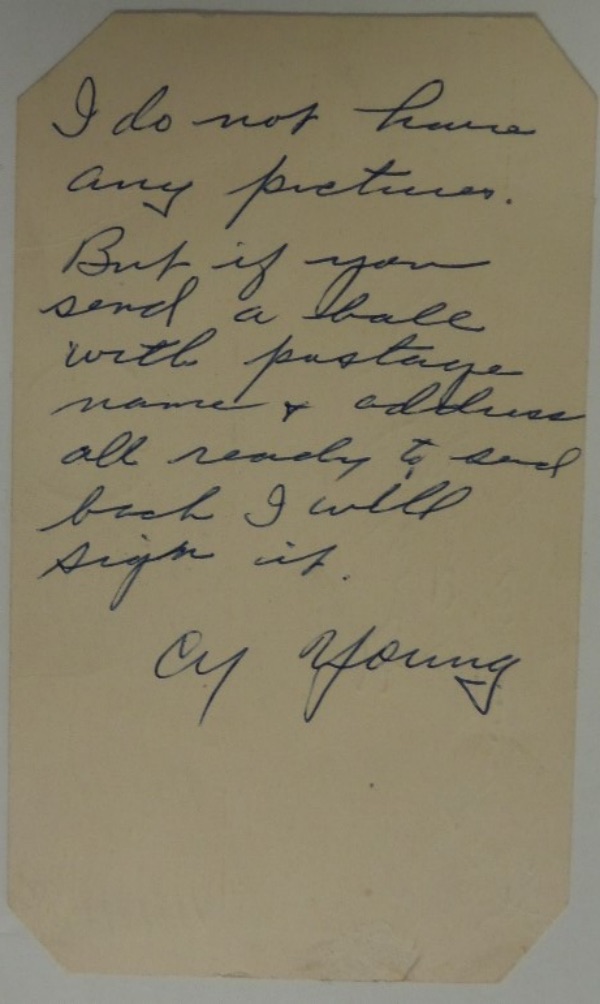 I do not have
any pictures.
But if you
send a ball
with postage
name & address
all ready to send
back I will
sign it.
Cy Young